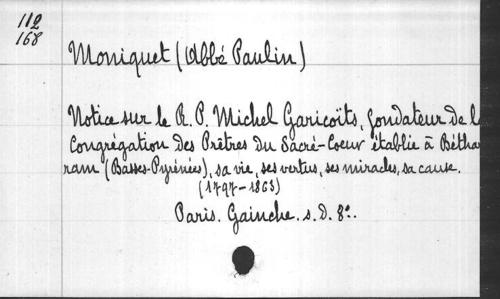 112
168
Moniquet (Abbé Paulin)
Notice sur le R. P. Michel Garicoïts, fondateur de l
Congrégation des Prêtres du Sacré-Coeur établie à Bétha
ram (Basses-Pyrénées), sa vie, ses vertus, ses miracles, sa cause.
(1797-1863)
Paris. Gainche. s. d. 8°.